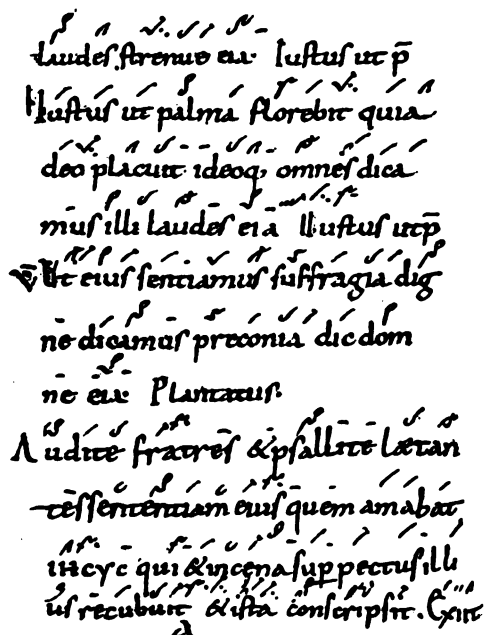 laudes strenue eia Iustus ut p̄
Iustus ut palma florebit quia
deo placuit ideoq, omnes dica
mus illi laudes eia Iustus ut p̄
Ut eius sentiamus suffragia dig
ne dicamus preconia dic dom
ne eia Plantatus.
Audite fratres & psallite lætan
tes sententiam eius quem amabat
ihcyc qui & in cena sup pectus illi
us recubuit & ista conscripsit.